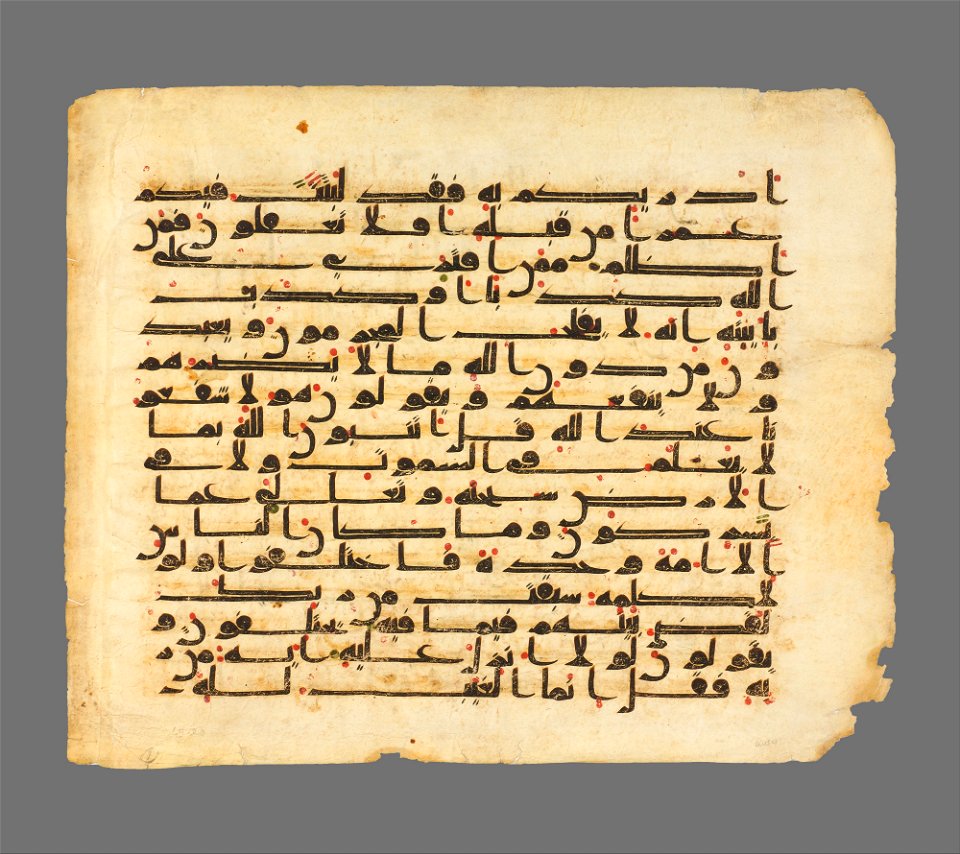 ادريكم به فقد لبثت فيكم
عمرا من قبله افلا تعقلون فمن
اظلم ممن افترى على
الله كذبا او كذب
بايته انه لا يفلح المجرمون ويعبد
ون من دون الله ما لا يضرهم
ولا ينفعهم ويقولون هولا شفعو
نا عند الله قل اتنبون الله بما
لا يعلم في السموت ولا في
الارض سبحنه وتعالى عما
يشركون وما كان الناس
الا امة وحدة فاختلفوا ولو
لا كلمة سبقت من ربك
لقضي بينهم فيما فيه يختلفون و
يقولون لولا انزل عليه اية من ر
به فقل انما الغيب لله